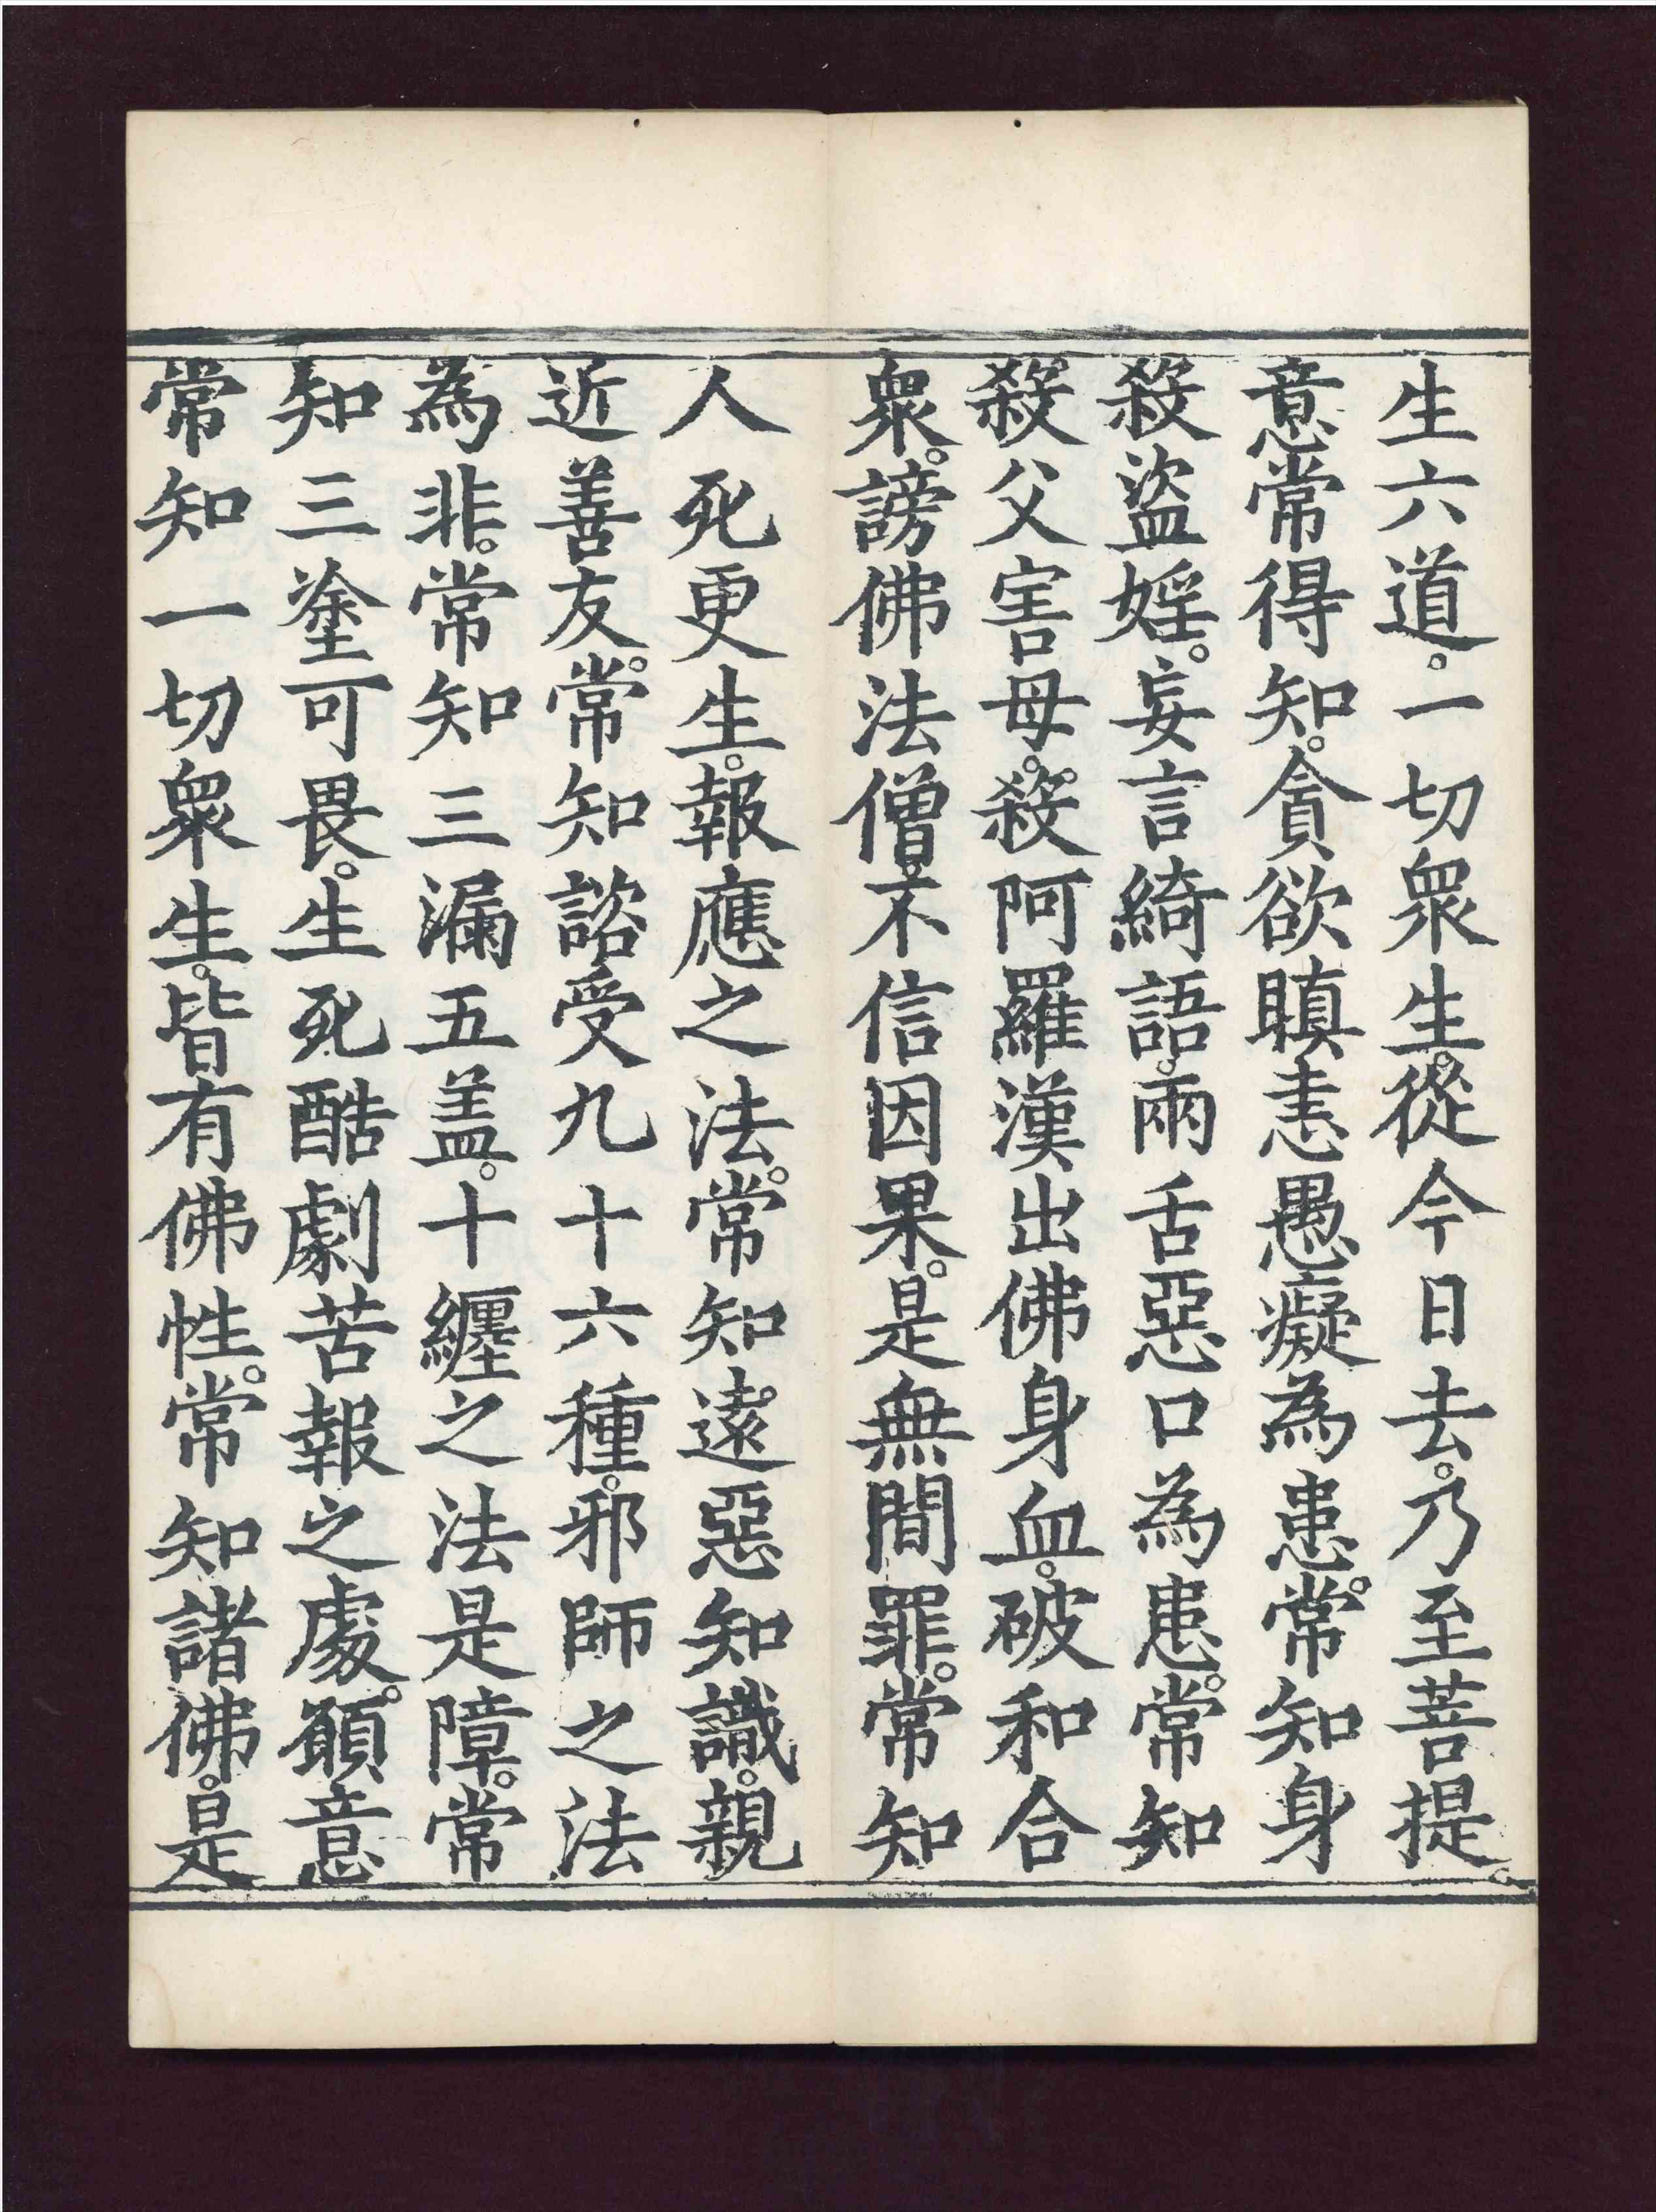 生六道。一切衆生。從今日去。乃至菩提。
意常得知。貪欲瞋恚愚癡為患。常知身
殺盜婬。妄言綺語。兩舌惡口為患。常知
殺父害母。殺阿羅漢出佛身血。破和合
衆。謗佛法僧。不信因果。是無間罪。常知
人死更生。報應之法。常知遠惡知識。親
近善友。常知諮受九十六種。邪師之法
為非。常知三漏五盖。十纏之法是障。常
知三塗可畏。生死酷劇苦報之處。願意
常知一切衆生。皆有佛性。常知諸佛。是